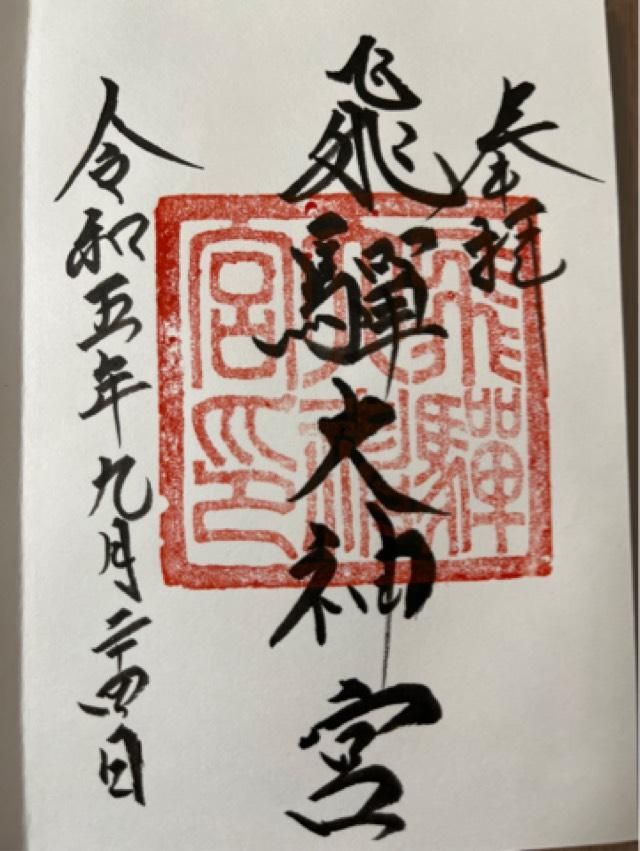 奉拝
飛驒大神宮
令和五年九月二十四日
飛驒大神宮印